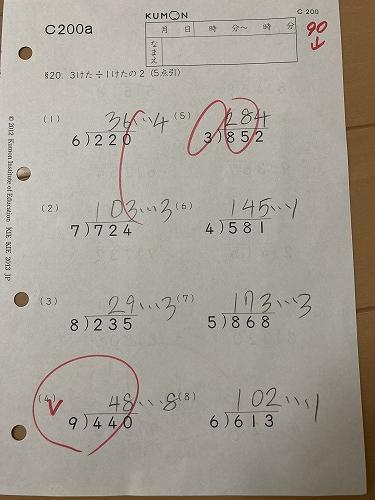 C200a
KUMON
C 200
月 日 時 分〜 時 分
なまえ
90
§20. 3けた÷1けたの2 (5点引)
(1) 36…4
6)220
(5) 284
3)852
(2) 103…3
7)724
(6) 145…1
4)581
(3) 29…3
8)235
(7) 173…3
5)868
(4) 48…8
9)440
(8) 102…1
6)613
© 2012 Kumon Institute of Education KIE KIE 2013 JP